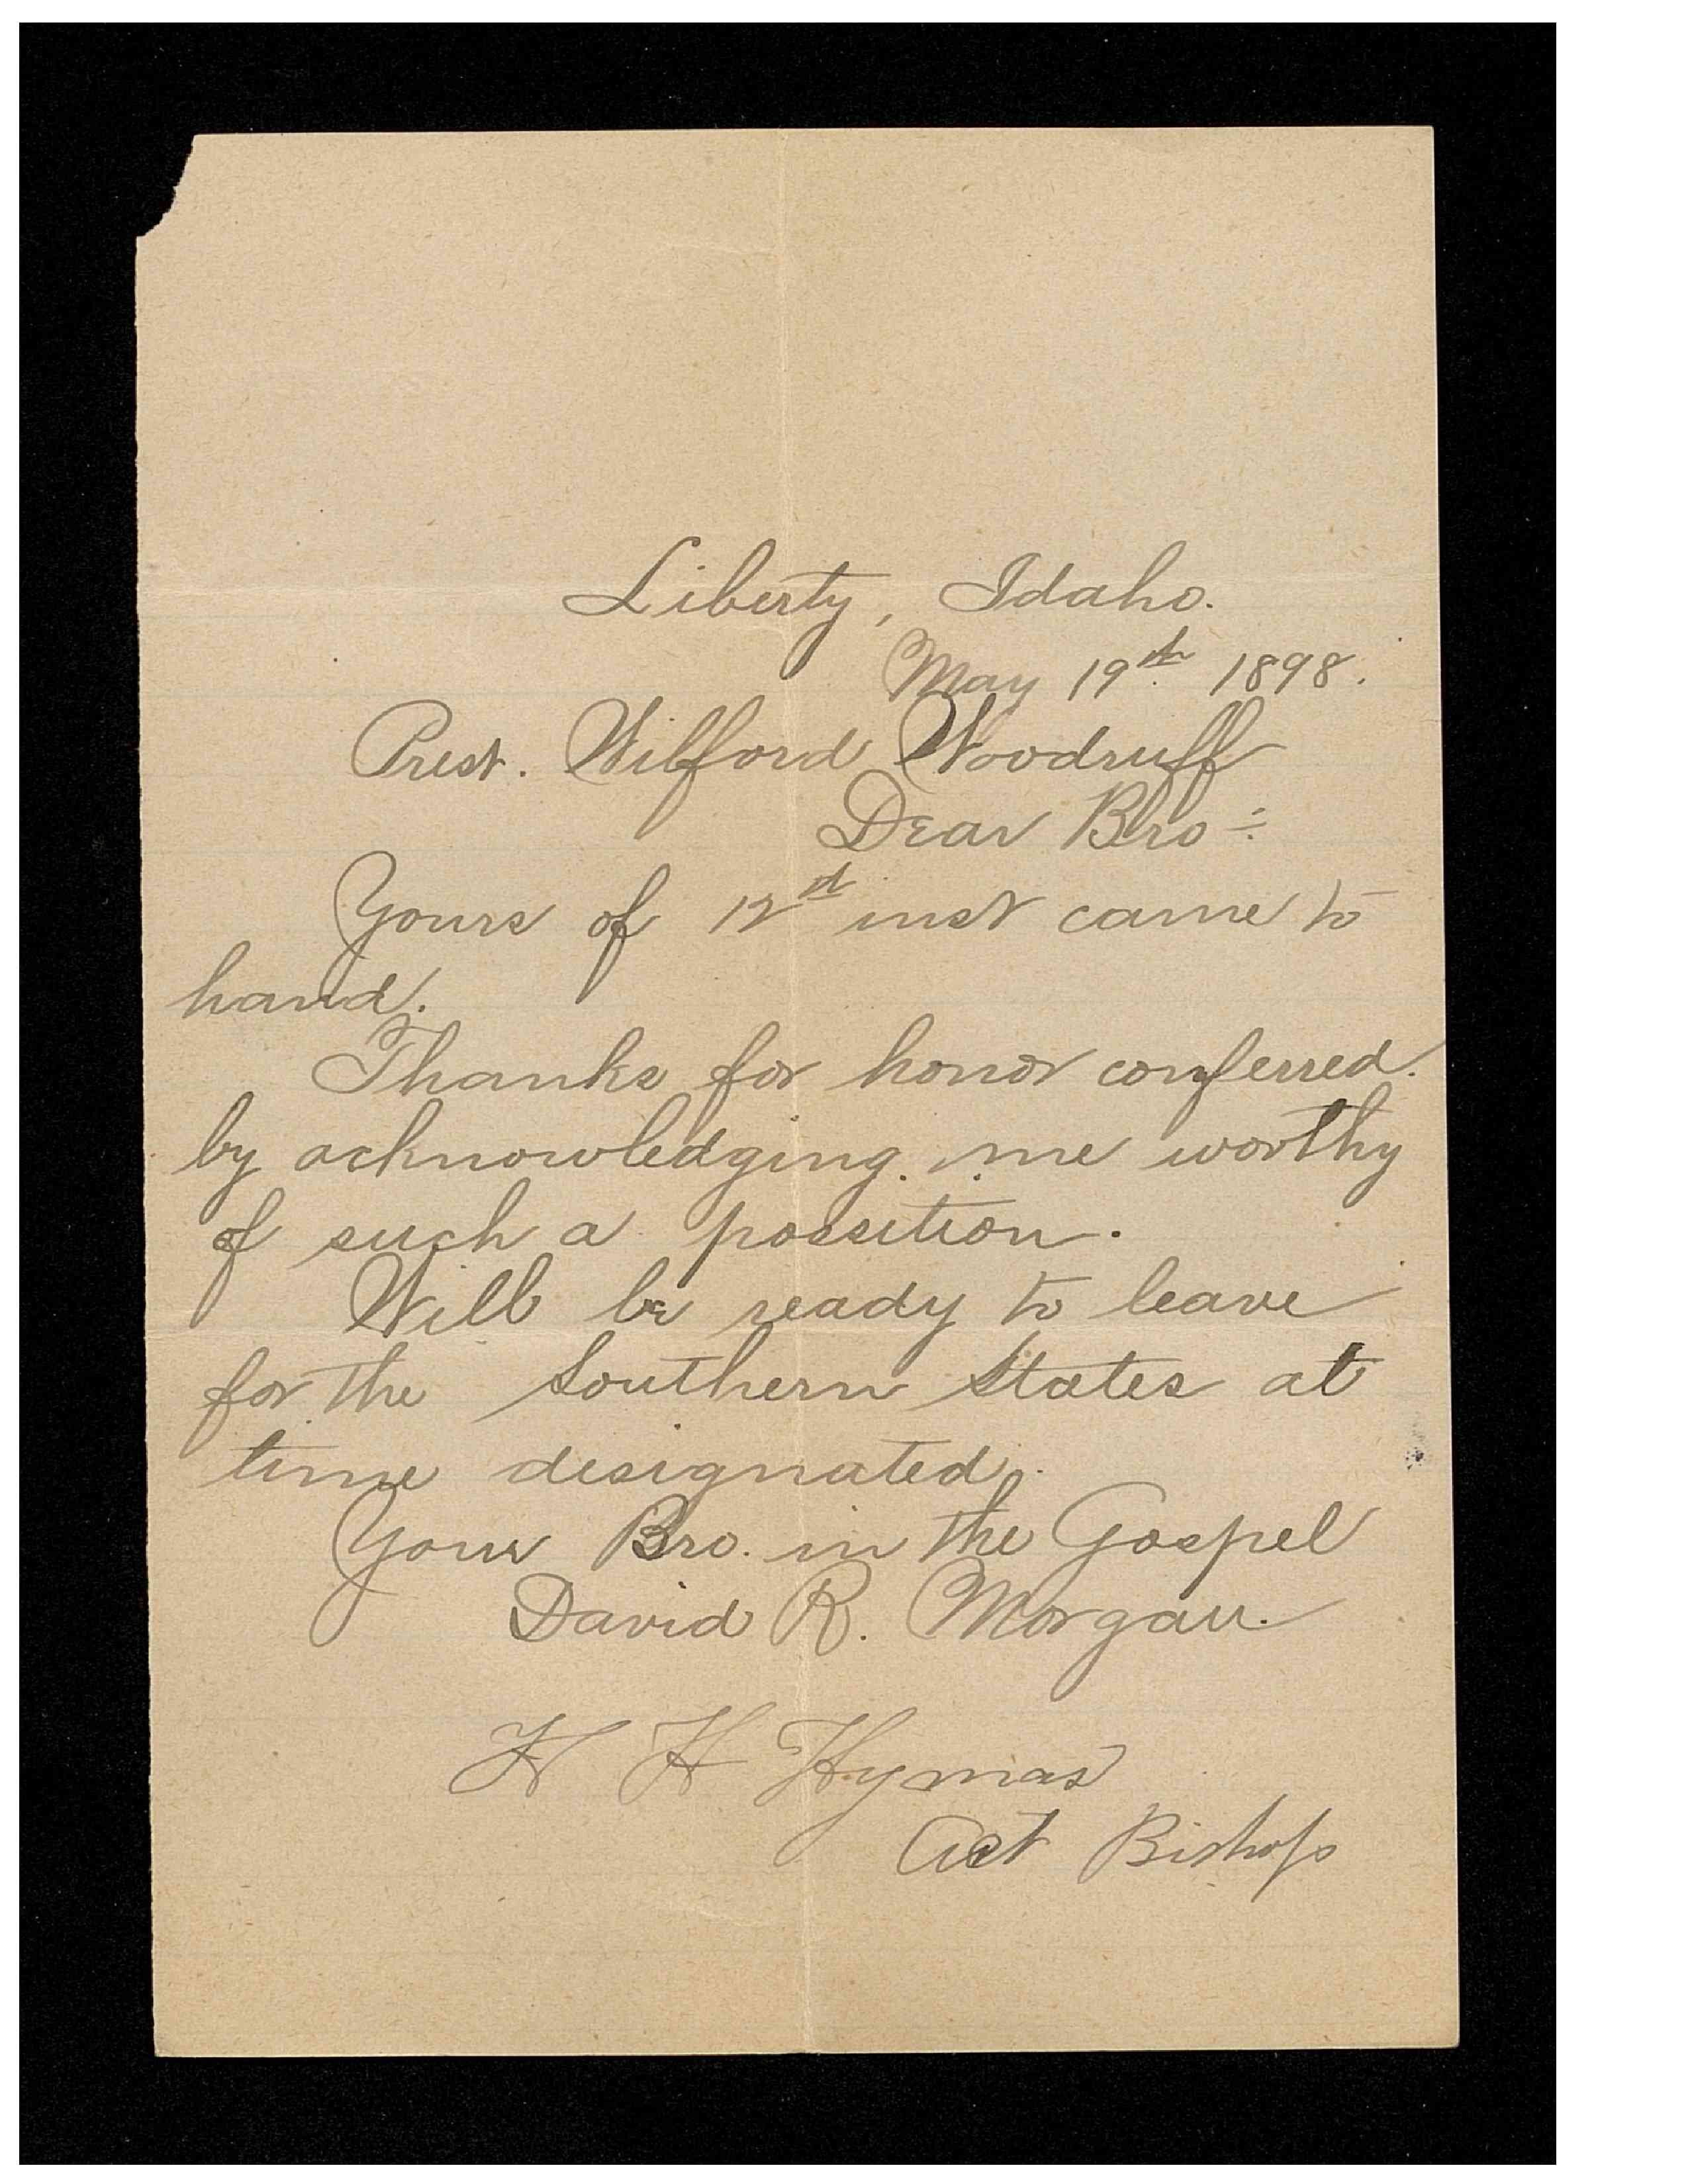 Liberty, Idaho.
May 19th 1898.
Prest. Wilford Woodruff
Dear Bro:
Yours of 12st inst came to
hand.
Thanks for honor conferred.
by acknowledging me worthy
of such a possition.
Will be ready to leave
for the Southern States at
time designated.
Your Bro. in the Gospel
David R. Morgan.
H H Hymas
Act Bishop